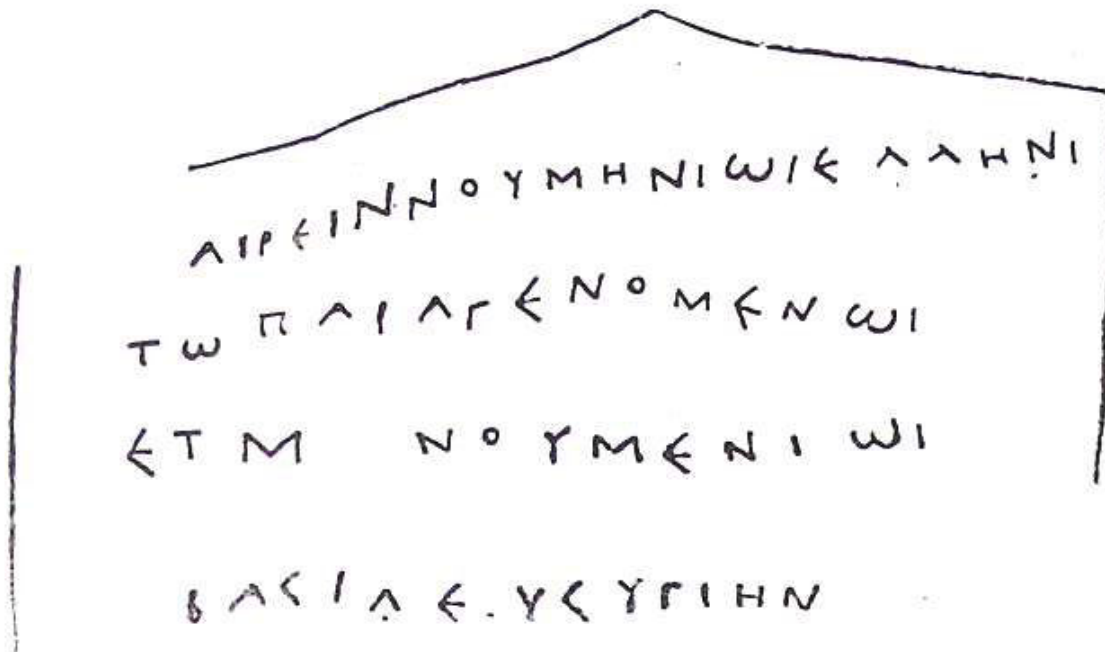 ΑΙΡΕΙΝΝΟΥΜΗΝΙΩΙΕΛΛΗΝΙ
ΤΩΠΑΡΑΓΕΝΟΜΕΝΩΙ
ΕΤΜ ΝΟΥΜΕΝΙΩΙ
ΒΑΣΙΛΕ.ΥΣΥΓΙΗΝ